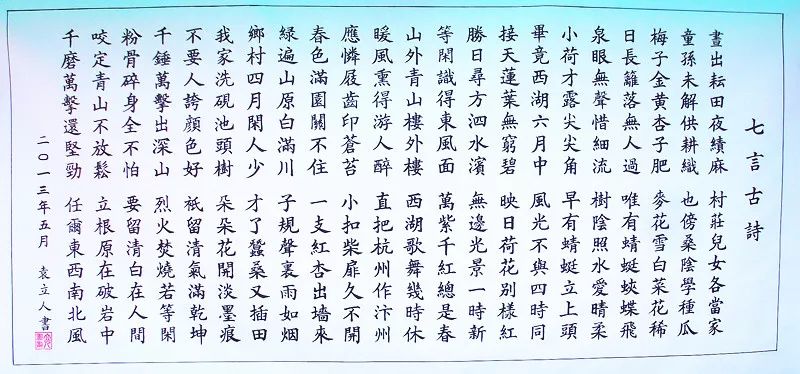 七言古詩
晝出耘田夜績麻 村莊兒女各當家
童孫未解供耕織 也傍桑陰學種瓜
梅子金黄杏子肥 麥花雪白菜花稀
日長籬落無人過 唯有蜻蜓蛺蝶飛
泉眼無聲惜細流 樹陰照水愛晴柔
小荷才露尖尖角 早有蜻蜓立上頭
畢竟西湖六月中 風光不與四時同
接天蓮葉無窮碧 映日荷花別樣紅
勝日尋方泗水濱 無邊光景一時新
等閑識得東風面 萬紫千紅總是春
山外青山樓外樓 西湖歌舞幾時休
暖風熏得游人醉 直把杭州作汴州
應憐屐齒印蒼苔 小扣柴扉久不開
春色滿園關不住 一支紅杏出墻來
綠遍山原白滿川 子規聲裏雨如烟
鄉村四月閑人少 才了蠶桑又插田
我家洗硯池頭樹 朵朵花開淡墨痕
不要人誇顔色好 祇留清氣滿乾坤
千錘萬擊出深山 烈火焚燒若等閑
粉骨碎身全不怕 要留清白在人間
咬定青山不放鬆 立根原在破岩中
千磨萬擊還堅勁 任爾東西南北風
二〇一三年五月 袁立人書